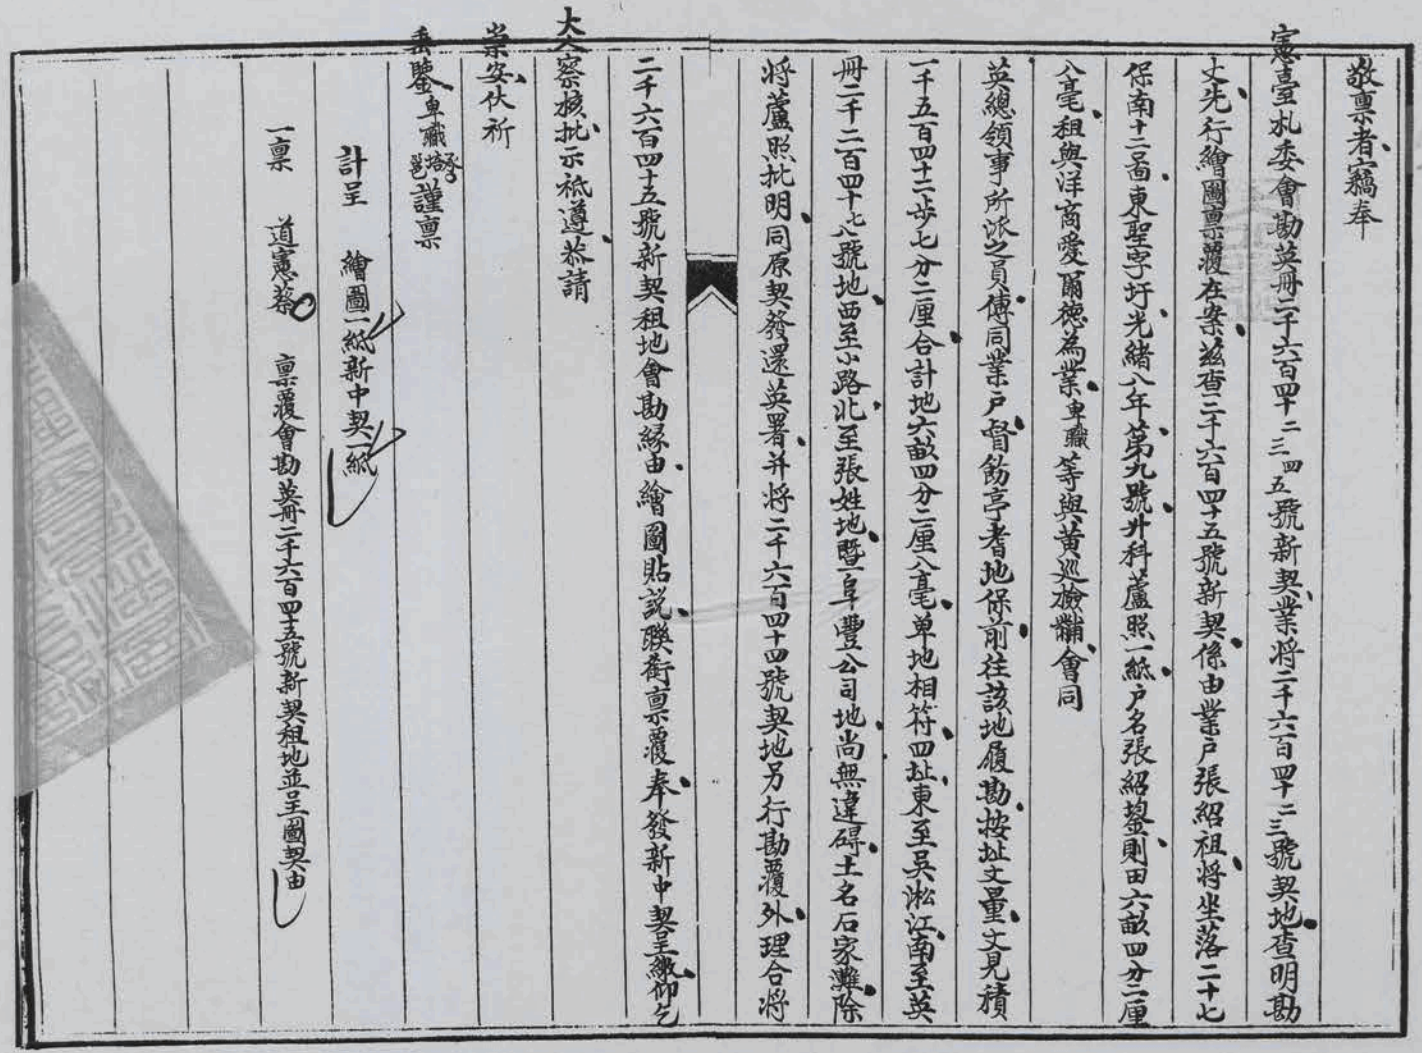 敬禀者竊奉
憲臺札委會勘英冊二千六百四十二三四五號新契業將二千六百四十二三號契地查明勘
丈先行繪圖禀覆在案茲查二千六百四十五號新契係由業户張紹祖將坐落二十七
保南十二啚東聖字圩光緒八年第九號升科蘆照一紙户名張紹鋆則田六畝四分二厘
八毫租與洋商愛爾德為業卑職等與黃巡檢黼會同
英總領事所派之員傅同業户督飭亭耆地保前往該地履勘按址丈量丈見積
一千五百四十二步七分二厘合計地六畝四分二厘八毫单地相符四址東至吳淞江南至英
冊二千二百四十七八號地西至小路北至張姓地暨阜豐公司地尚無違碍土名石家灘除
將蘆照批明同原契發還英署并將二千六百四十四號契地另行勘覆外理合將
二千六百四十五號新契租地會勘緣由繪圖貼説聯銜禀覆奉發新中契呈繳仰乞
大人察核批示祗遵恭請
崇安伏祈
垂鑒卑職謹禀
計呈 繪圖一紙新中契一紙
一禀 道憲蔡 禀覆會勘英冊二千六百四十五號新契租地並呈圖契由